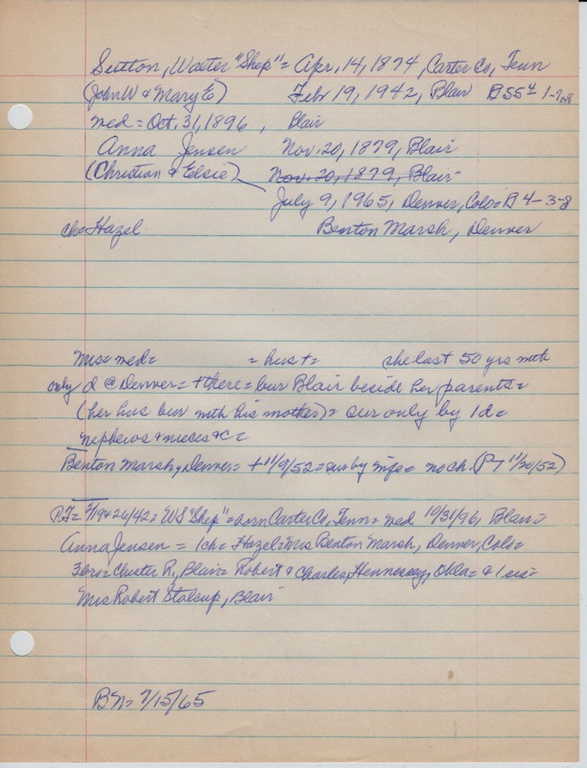 Sutton, Walter "Shep" = Apr. 14, 1874, Carter Co, Tenn
(John W & Mary E) Feb 19, 1942, Blair B 55 4 1-7 of 8
med = Oct. 31, 1896, Blair
Anna Jensen Nov. 20, 1879, Blair
(Christian & Elsie) Nov. 20, 1879, Blair
July 9, 1965, Denver, Colo = B 4-3-8
ch = Hazel Benton Marsh, Denver
Mrs = med = = hus + = she last 50 yrs mth
only d @ Denver = + there = bur Blair beside her parents =
(her hus bur mth his mother) = sur only by 1 d =
nephews & nieces &c =
Benton Marsh, Denver = + 11/9/52 = sur by wife = no ch. (P-T 11/20/52)
P.T = 2/19 & 26/42 = WS "Shep" = born Carter Co, Tenn = med 10/31/96, Blair =
Anna Jensen = 1 ch = Hazel = Mrs Benton Marsh, Denver, Colo =
3 bro = Chester R, Blair = Robert & Charles, Hennessey, Okla = & 1 sis =
Mrs Robert Stalcup, Blair
B N = 7/15/65